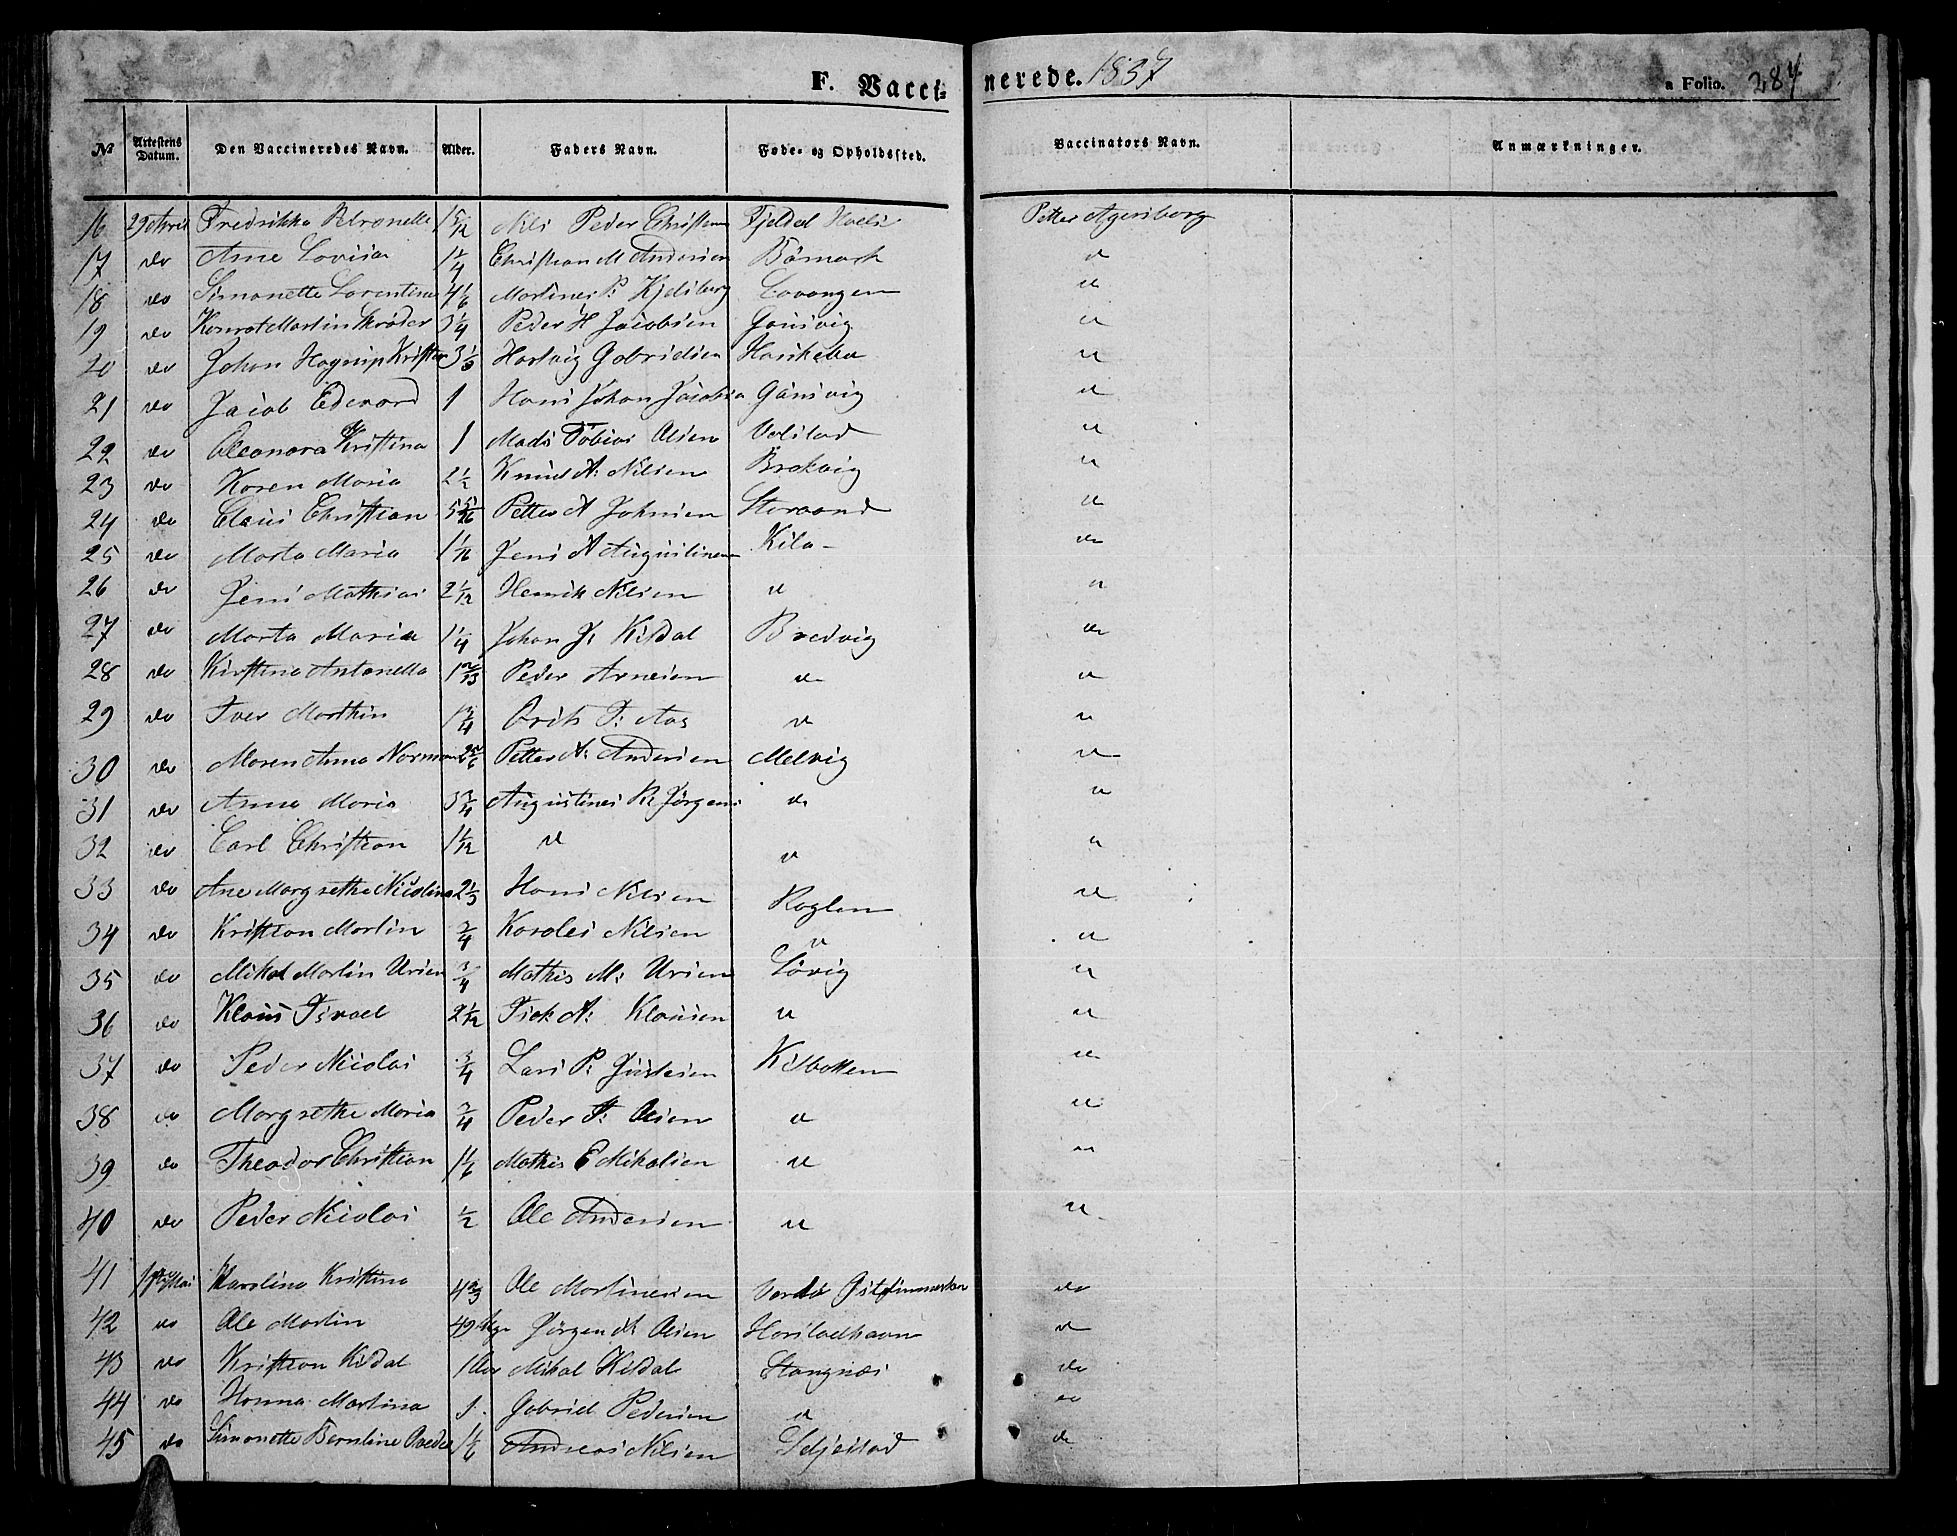 F. Vacci- nerede. 1837 a Folio. 287
№ Attestens Datum. Den Vaccineredes Navn. Alder. Faders Navn. Føde- og Opholdssted. Vaccinators Navn. Anmærkninger.
16 29 April Fredrikka Petronelle 1 5/12 Nils Peder Christian Fjeldal Petter Agersborg
17 do Anne Lovisa 1 1/4 Christian M Andersen Bömark d
18 do Simonette Lorentine 4 1/6 Martines P: Kjelsberg Lavangen d
19 do Konrat Martin Skröder 3 1/4 Peder H Jacobsen Gausvig d
20 do Johan Hagrup Kristen 3 1/3 Hartvig Gabrielsen d
21 do Jacob Edevard 1 Hans Johan Jacobsen Gausvig d
22 do Oleanora Kristina 1 Mads Tobias Olsen Velstad d
23 do Karen Maria 2 1/2 Knud A: Nilsen Brokvig d
24 do Claus Christian 5 Petter A Johnsen Storaand d
25 do Marta Maria 1 Jens A Augustinsen Kila d
26 do Jens Mathias 2 1/12 Henrik Nilsen d d
27 do Marta Maria 1 1/4 Johan J. Kildal Bredvig d
28 do Kirstina Antonella 1 Peder Arnesen d d
29 do Iver Marthin 1 3/4 d d
30 do Maren Anna Norman 2 5/6 Petter A: Andersen Melvig d
31 do Anne Maria 3 3/4 Augustines R. Jörgens d d
32 do Carl Christian 1 1/12 d d d
33 do Ane Margrethe Nicolina 2 1/3 Hans Nilsen Roglen d
34 do Kristian Martin 3/4 Karoles Nilsen d d
35 do Mikal Martin Ursen 3/4 Mathis M: Ursen Lövig d
36 do Klaus Israel 2 1/12 Isak A: Klausen d d
37 do Peder Nicolai 3/4 Lars P: Kilbotten d
38 do Margrethe Maria 3/4 Peder T: Olsen d d
39 do Theodor Christian 1 1/6 Mathis E Mikalsen d d
40 do Peder Nicolai 1/2 Ole Andersen d d
41 Mai Karolina Kristina 4 2/3 Ole Martinesen Vardö Östfinmarken do
42 do Ole Martin 49 Uge Jörgen A Olsen Harstadhavn d
43 do Kristian Kildal 1 Aar Mikal Kildal Stangnæs do
44 do Hanna Martina 1 Gabriel Pedersen d do
45 do Simonette Berntine 1 1/6 Andreas Nilsen d